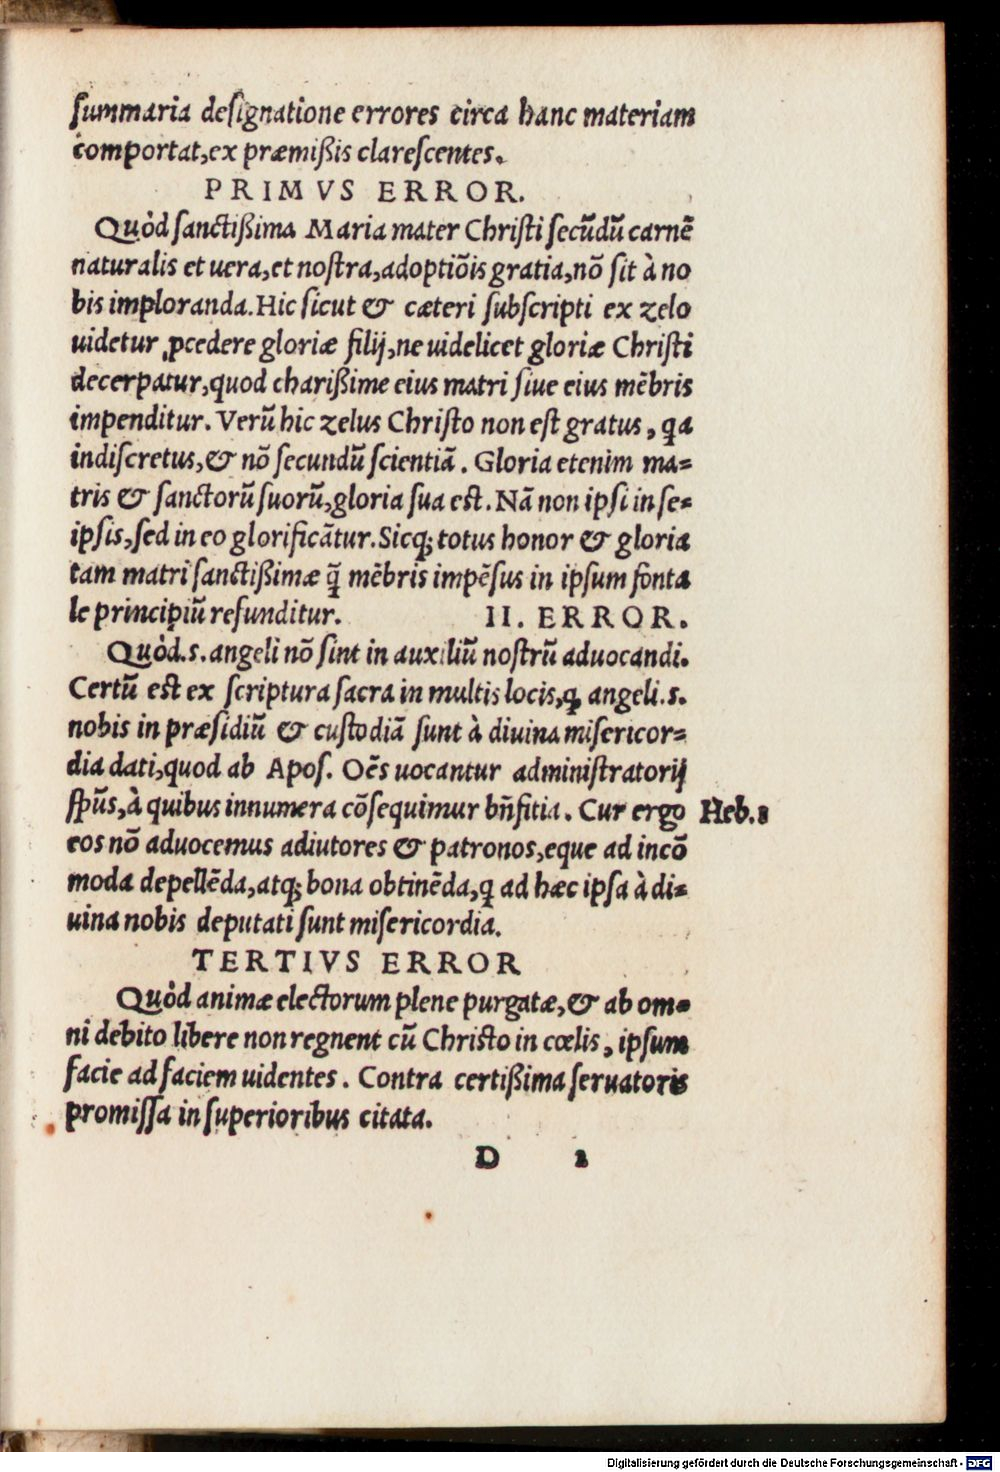 ſummaria deſignatione errores circa hanc materiam
comportat, ex præmiſſis clareſcentes.
PRIMVS ERROR.
Quòd ſanctiſſima Maria mater Chriſti ſecūdū carnē
naturalis et uera, et noſtra, adoptiōis gratia, nō ſit à no
bis imploranda. Hic ſicut & cæteri ſubſcripti ex zelo
uidetur ꝓcedere gloriæ filij, ne uidelicet gloriæ Chriſti
decerpatur, quod chariſſime eius matri ſiue eius mēbris
impenditur. Verū hic zelus Chriſto non eſt gratus, qa
indiſcretus, & nō ſecundū ſcientiā. Gloria etenim ma=
tris & ſanctorū ſuorū, gloria sua eſt. Nā non ipſi in ſe=
ipſis, ſed in eo glorificātur. Sicq; totus honor & gloria
tam matri ſanctiſſimæ q̄ mēbris impēſus in ipſum fonta
le principiū refunditur. II. ERROR.
Quòd .s. angeli nō ſint in auxiliū noſtrū aduocandi.
Certū eſt ex ſcriptura ſacra in multis locis, ꝙ angeli .s.
nobis in præſidiū & cuſtodiā ſunt à diuina miſericor=
dia dati, quod ab Apoſ. Oēs uocantur adminiſtratorij
ſpūs, à quibus innumera cōſequimur bn̄fitia. Cur ergo Heb. 1
eos nō aduocemus adiutores & patronos, eque ad incō
moda depellēda, atq; bona obtinēda, ꝙ ad hæc ipſa à di=
uina nobis deputati ſunt miſericordia.
TERTIVS ERROR
Quòd animæ electorum plene purgatæ, & ab om=
ni debito libere non regnent cū Chriſto in cœlis, ipſum
facie ad faciem uidentes. Contra certiſſima ſeruatoris
promiſſa in ſuperioribus citata.
D 2
Digitalisierung gefördert durch die Deutsche Forschungsgemeinschaft - DFG